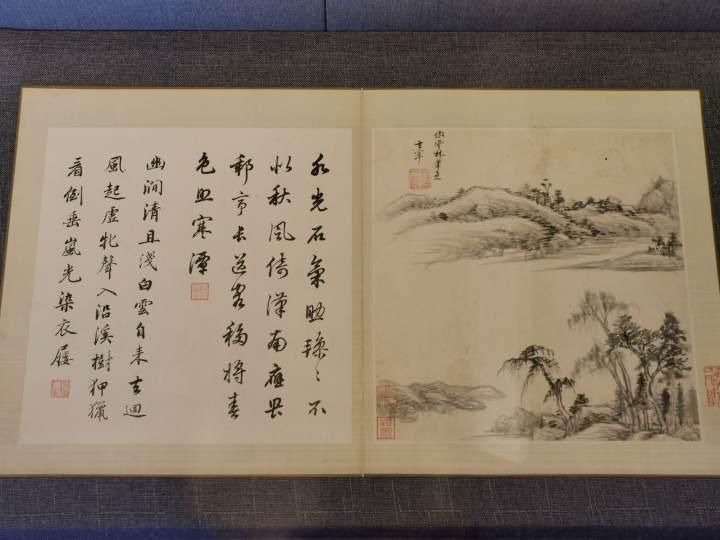 倣雲林筆意
玄宰
水光石氣助毿〻不
似秋風倚漢南應與
郵亭長送客移將春
色照寒潭
幽澗清且淺白雲自来去迴
風起虛牝聲入沿溪樹狎獵
看倒垂嵐光染衣屨